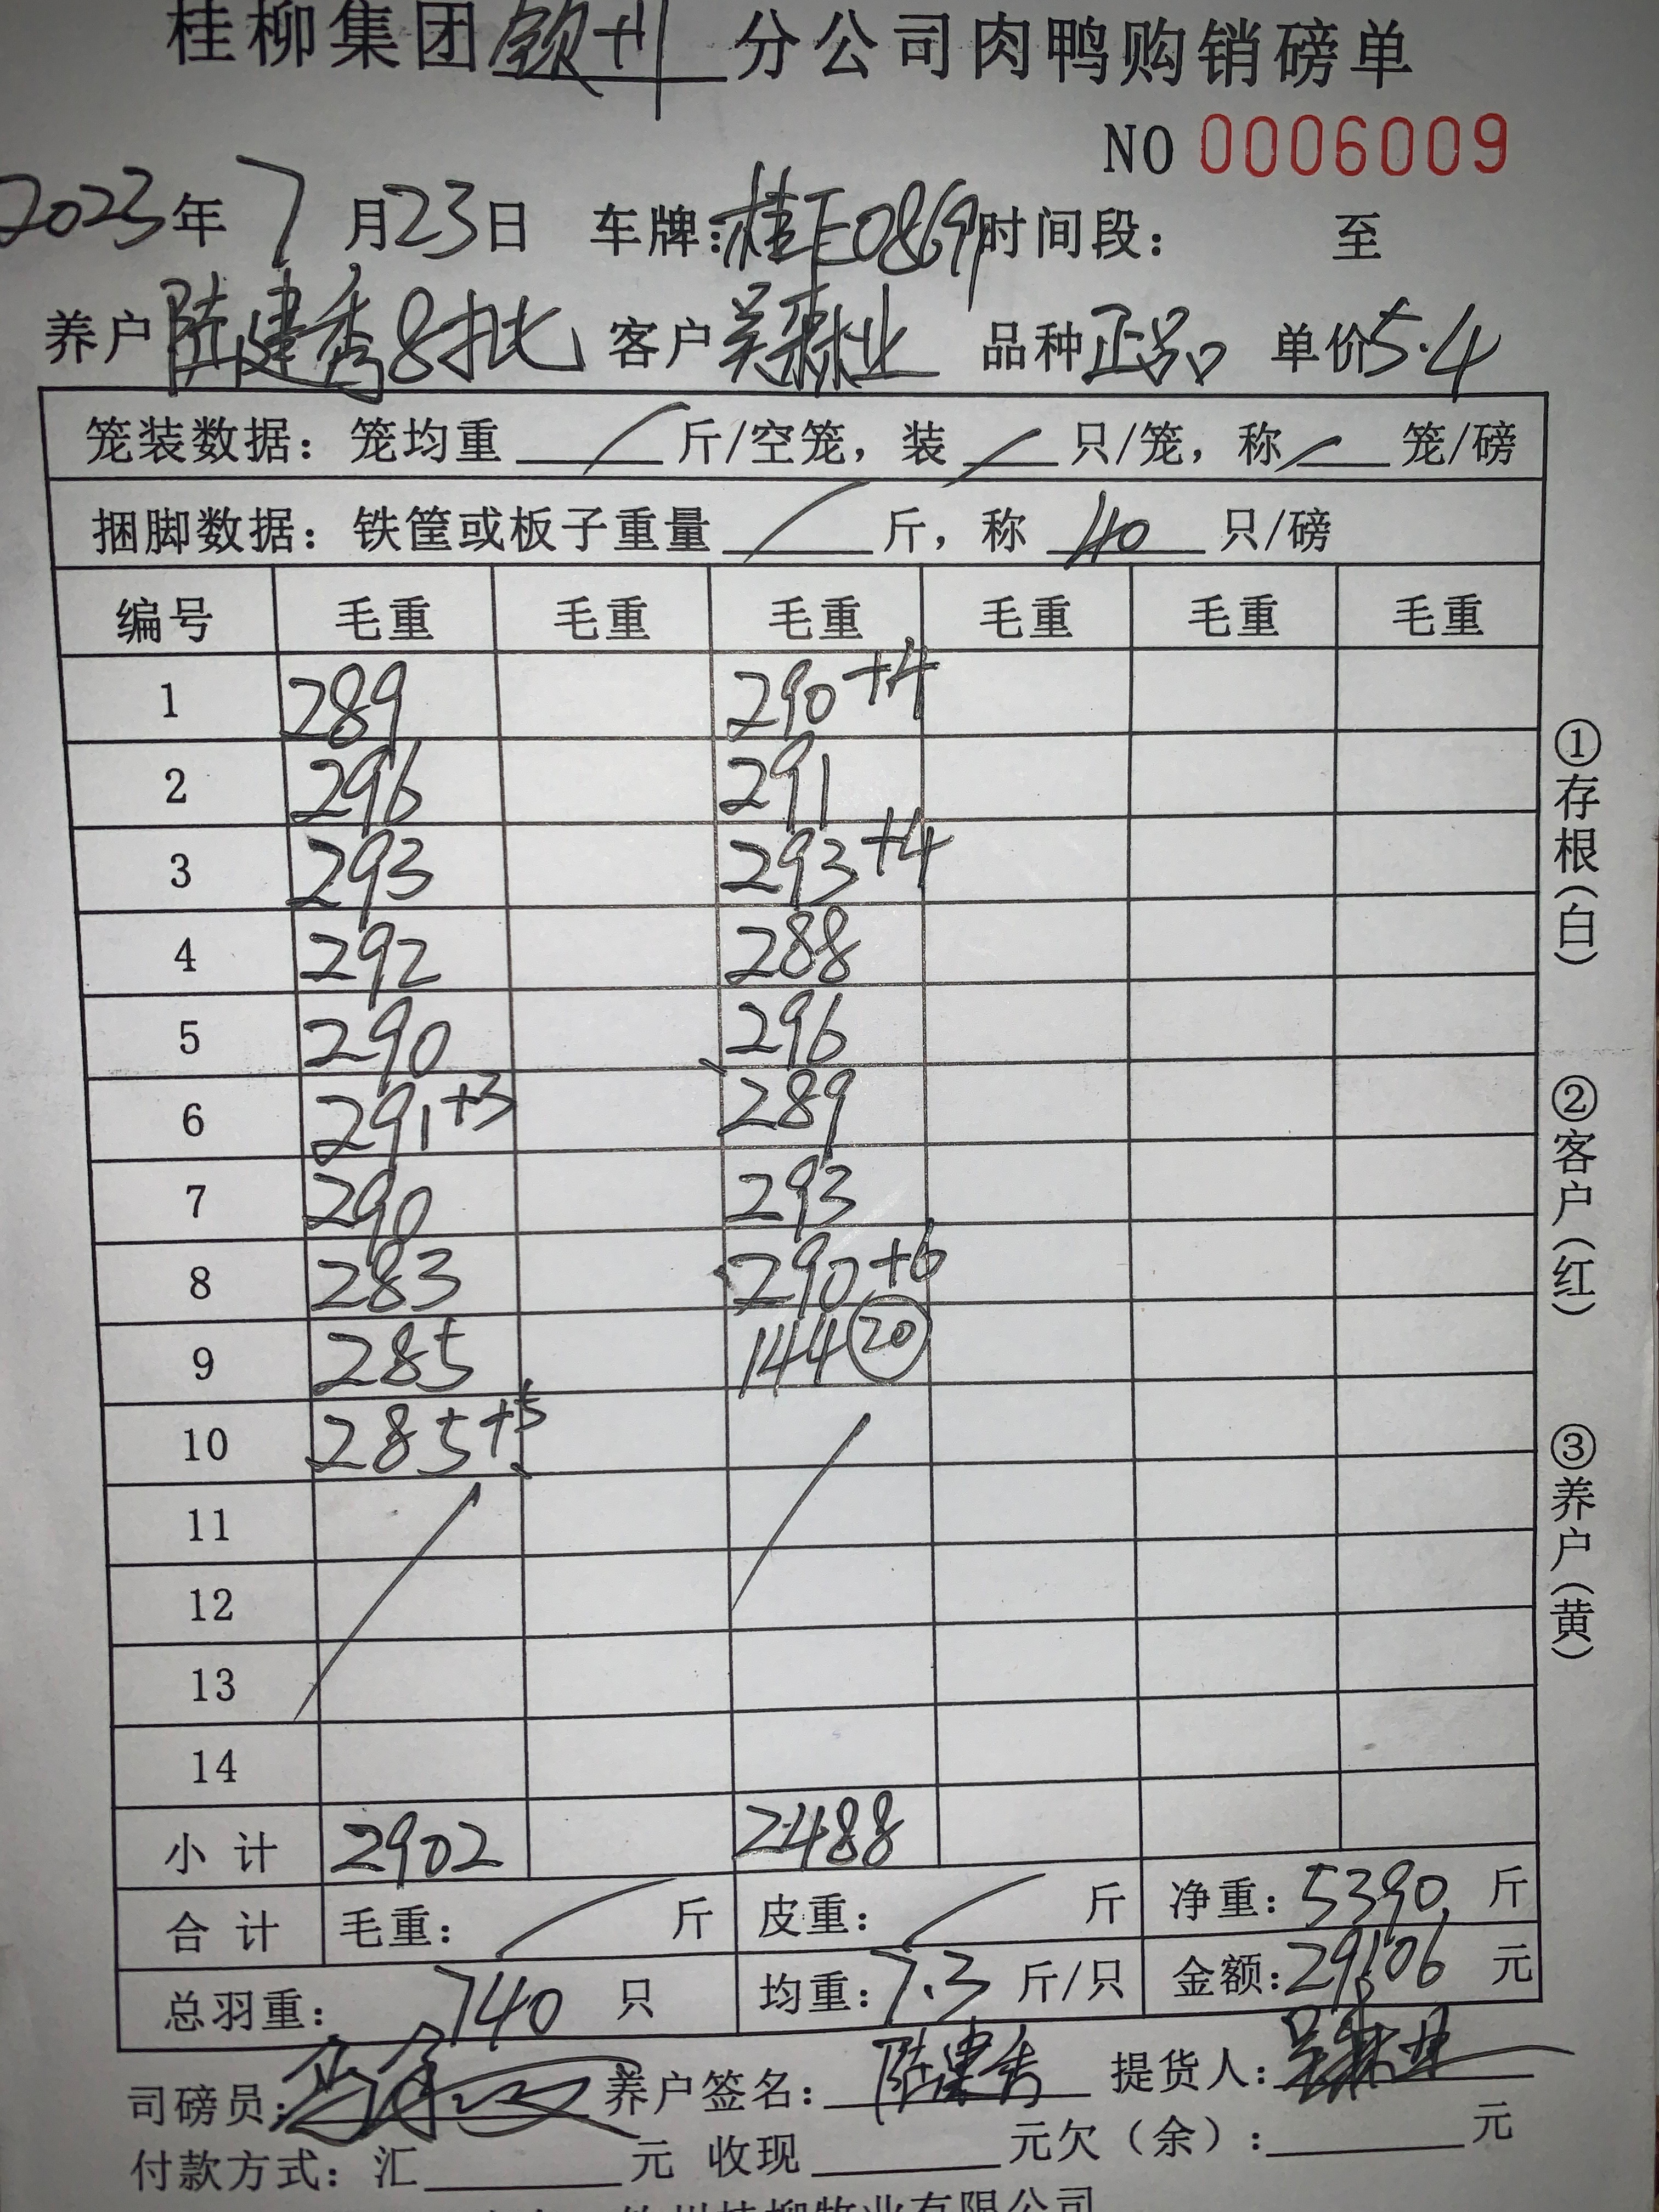 桂柳集团钦州分公司肉鸭购销磅单
NO 0006009
2023年 7月23日 车牌:桂E0869 时间段: 至
养户 陆建秀8批 客户 吴森业 品种 正品 单价5.4
笼装数据: 笼均重 / 斤/空笼, 装 / 只/笼, 称 / 笼/磅
捆脚数据: 铁筐或板子重量 / 斤, 称 40 只/磅
编号 毛重 毛重 毛重 毛重 毛重 毛重
1 289 290+4
2 296 291
3 293 293+4
4 292 288
5 290 296
6 291+3 289
7 290 293
8 283 290+6
9 285 144 20
10 285+5
11
12
13
14
小计 2902 2488
合计 毛重: / 斤 皮重: / 斤 净重: 5390 斤
总羽重: 740 只 均重: 7.3 斤/只 金额: 29106 元
司磅员: 养户签名: 陆建秀 提货人: 吴森业
付款方式: 汇 元 收现 元欠(余): 元
钦州桂柳牧业有限公司
①存根(白)
②客户(红)
③养户(黄)